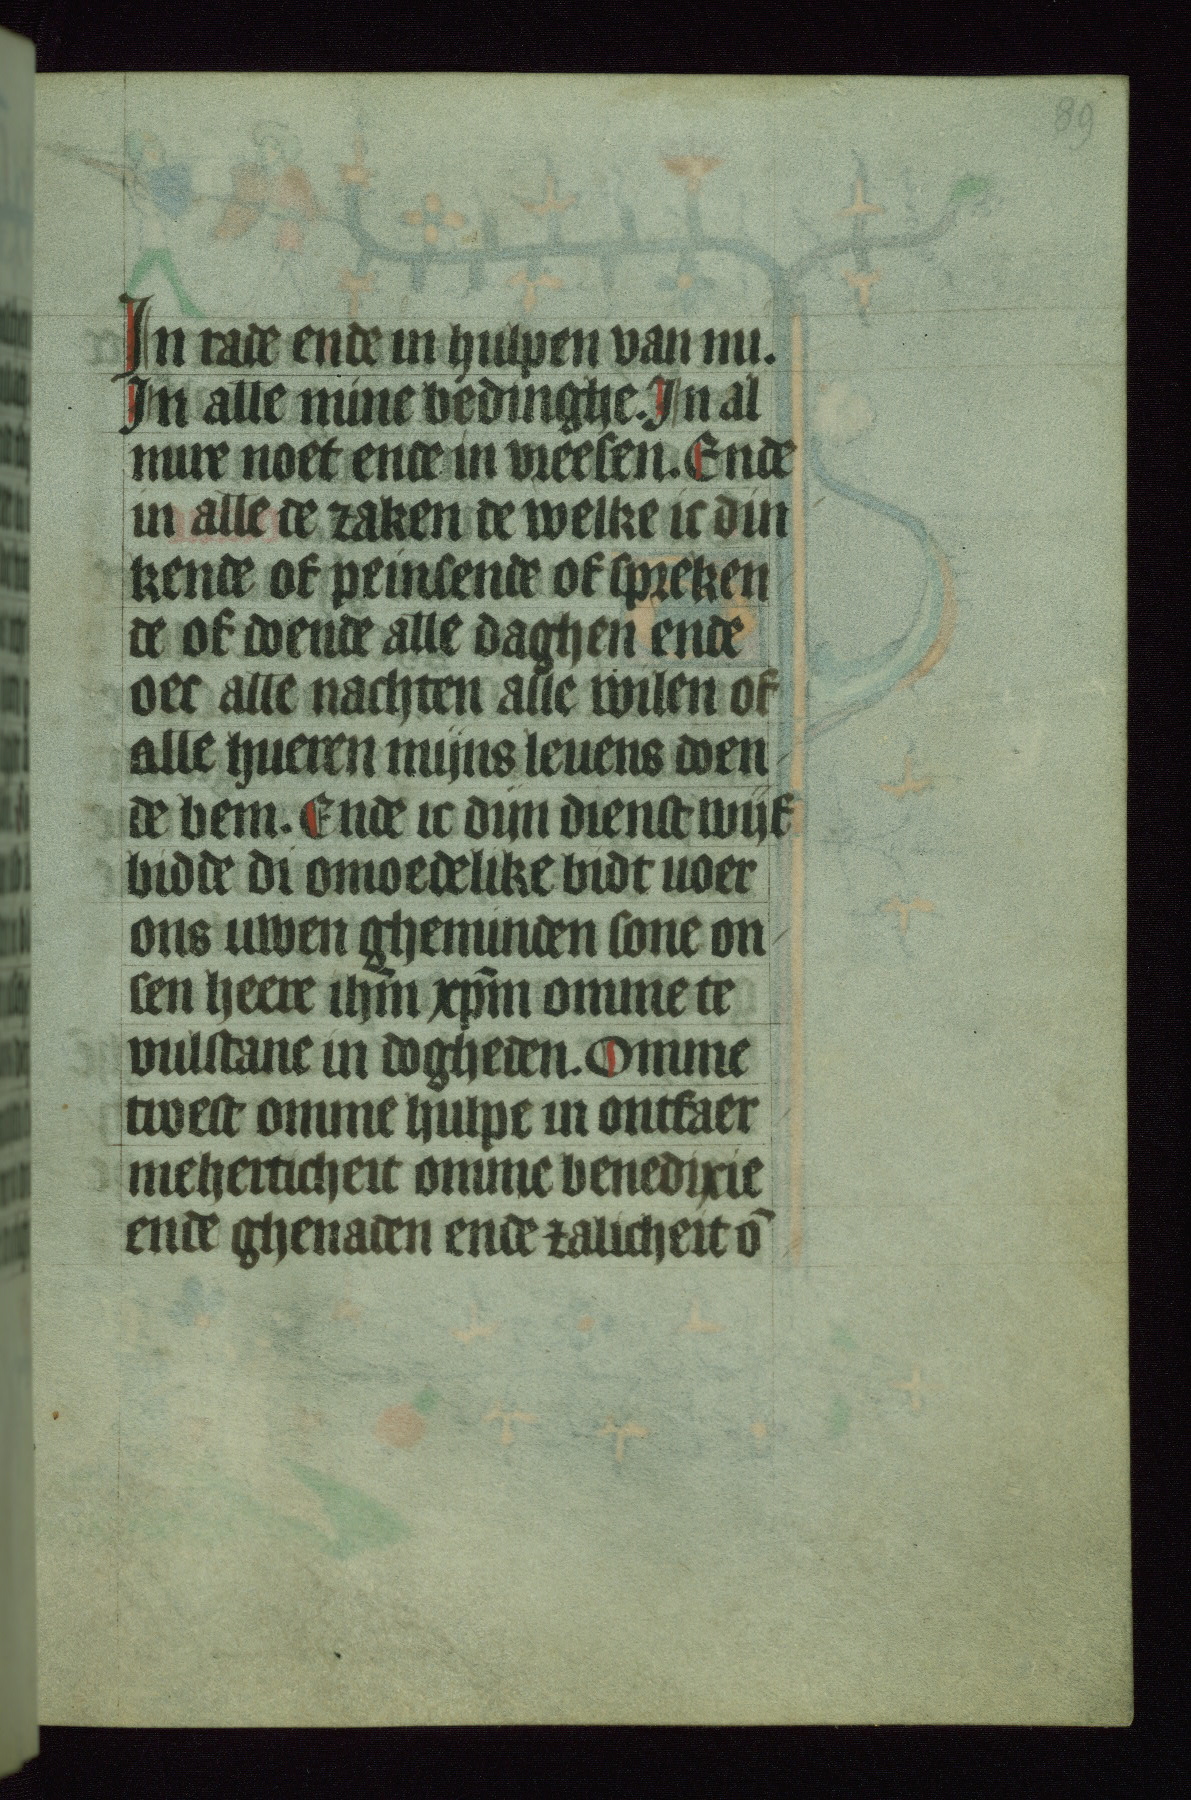 89
In rade ende in hulpen van nu.
In alle mine bedinghe. In al
mire noet ende in vreesen. Ende
in alle de zaken de welke ic din
kende of peinsende of spreken
de of doende alle daghen ende
oec alle nachten alle wilen of
alle hueren mijns leuens doen
de bem. Ende ic dijn dienstwijf
bidde di omoedelike bidt uoer
ons uwen gheminden sone on
sen heere ihm̄ xpm̄ omme te
vulstane in dogheden. Omme
twest omme hulpe in ontfaer
meherticheit omme benedixie
ende ghenaden ende zalicheit o̅